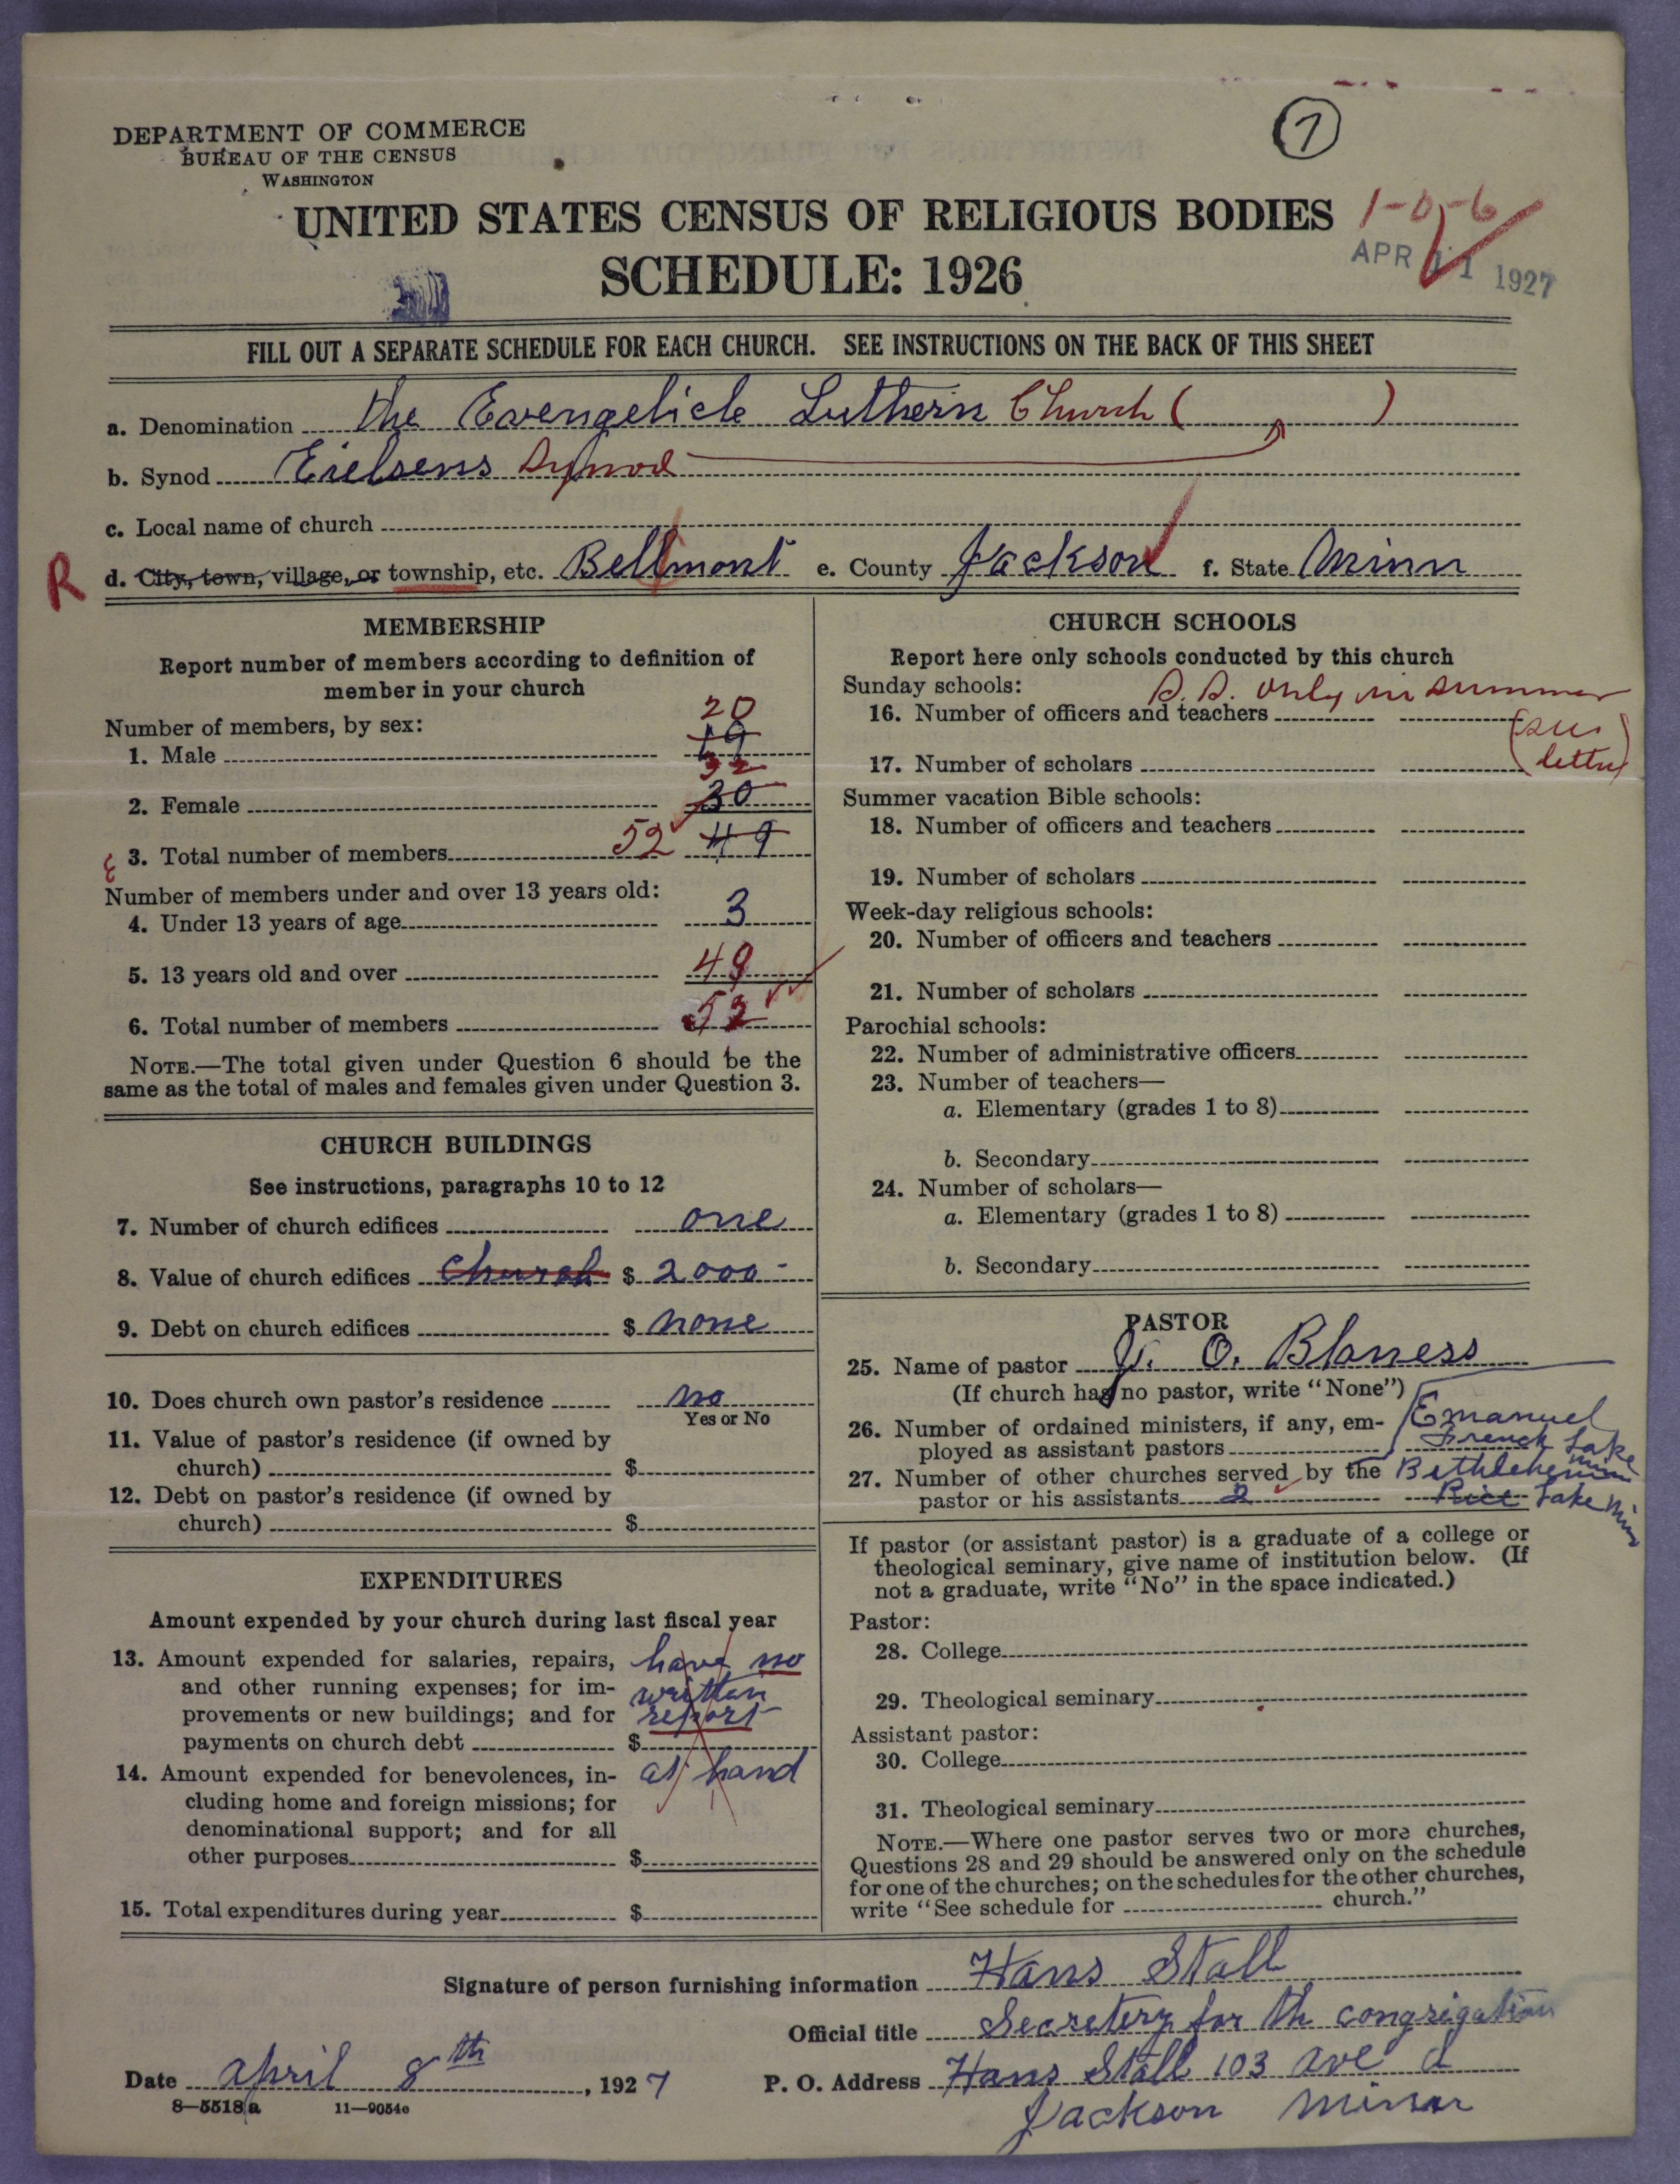 DEPARTMENT OF COMMERCE
BUREAU OF THE CENSUS
WASHINGTON
1
UNITED STATES CENSUS OF RELIGIOUS BODIES
1-0-6
SCHEDULE: 1926
APR 11 1927
FILL OUT A SEPARATE SCHEDULE FOR EACH CHURCH. SEE INSTRUCTIONS ON THE BACK OF THIS SHEET
a. Denomination The Evengelicle Luthern Church ( )
b. Synod Eielsens Synod
c. Local name of church
R d. City, town, village, or township, etc. Bellmont e. County Jackson f. State Minn
MEMBERSHIP
Report number of members according to definition of
member in your church
Number of members, by sex:
20
1. Male 19
32
2. Female 30
3. Total number of members 52 49
Number of members under and over 13 years old:
4. Under 13 years of age 3
5. 13 years old and over 49
6. Total number of members 52
NOTE.—The total given under Question 6 should be the
same as the total of males and females given under Question 3.
CHURCH BUILDINGS
See instructions, paragraphs 10 to 12
7. Number of church edifices one
8. Value of church edifices church $ 2000-
9. Debt on church edifices $ none
10. Does church own pastor's residence no
Yes or No
11. Value of pastor's residence (if owned by
church) $
12. Debt on pastor's residence (if owned by
church) $
EXPENDITURES
Amount expended by your church during last fiscal year
13. Amount expended for salaries, repairs, have no
and other running expenses; for im- written
provements or new buildings; and for report
payments on church debt $
14. Amount expended for benevolences, in- at hand
cluding home and foreign missions; for
denominational support; and for all
other purposes $
15. Total expenditures during year $
CHURCH SCHOOLS
Report here only schools conducted by this church
Sunday schools: S.S. only in summer
16. Number of officers and teachers (see
17. Number of scholars letter)
Summer vacation Bible schools:
18. Number of officers and teachers
19. Number of scholars
Week-day religious schools:
20. Number of officers and teachers
21. Number of scholars
Parochial schools:
22. Number of administrative officers
23. Number of teachers—
a. Elementary (grades 1 to 8)
b. Secondary
24. Number of scholars—
a. Elementary (grades 1 to 8)
b. Secondary
PASTOR
25. Name of pastor O. Blaness
(If church has no pastor, write "None")
26. Number of ordained ministers, if any, em- Emanuel
ployed as assistant pastors French Lake Minn
27. Number of other churches served by the Bethlehem
pastor or his assistants 2 Rice Lake Minn
If pastor (or assistant pastor) is a graduate of a college or
theological seminary, give name of institution below. (If
not a graduate, write "No" in the space indicated.)
Pastor:
28. College
29. Theological seminary
Assistant pastor:
30. College
31. Theological seminary
NOTE.—Where one pastor serves two or more churches,
Questions 28 and 29 should be answered only on the schedule
for one of the churches; on the schedules for the other churches,
write "See schedule for church."
Signature of person furnishing information Hans Stall
Official title Secretery for th congregation
Date april 8th, 1927 P. O. Address Hans Stall 103 ave d
8—5518a 11—9054c
Jackson Minn